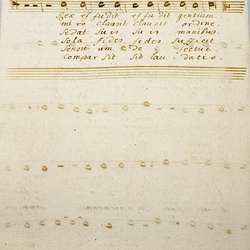 Rex ef fudit ef fudit gentium.
mi ro clausit clausit ordine.
Sedat su is su is manibus.
Sola fides fides sufficit
Sensit um de fectui.
compar sit sit lau datio.